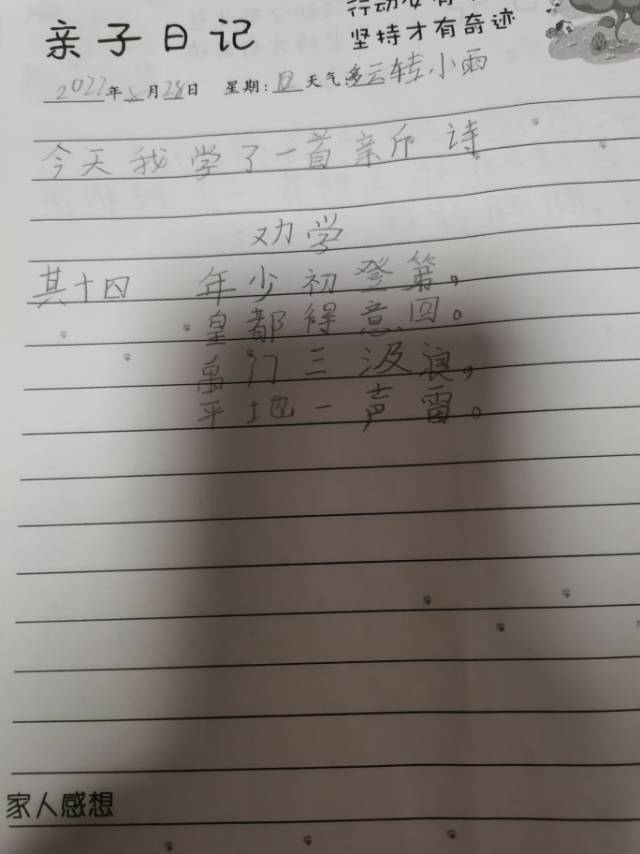 坚持才有奇迹
亲子日记
2022年8月28日 星期:日 天气:多云转小雨
今天我学了一首亲斤诗
劝学
其十四 年少初登第,
皇都得意回。
禹门三汲浪,
平地一声雷。
家人感想